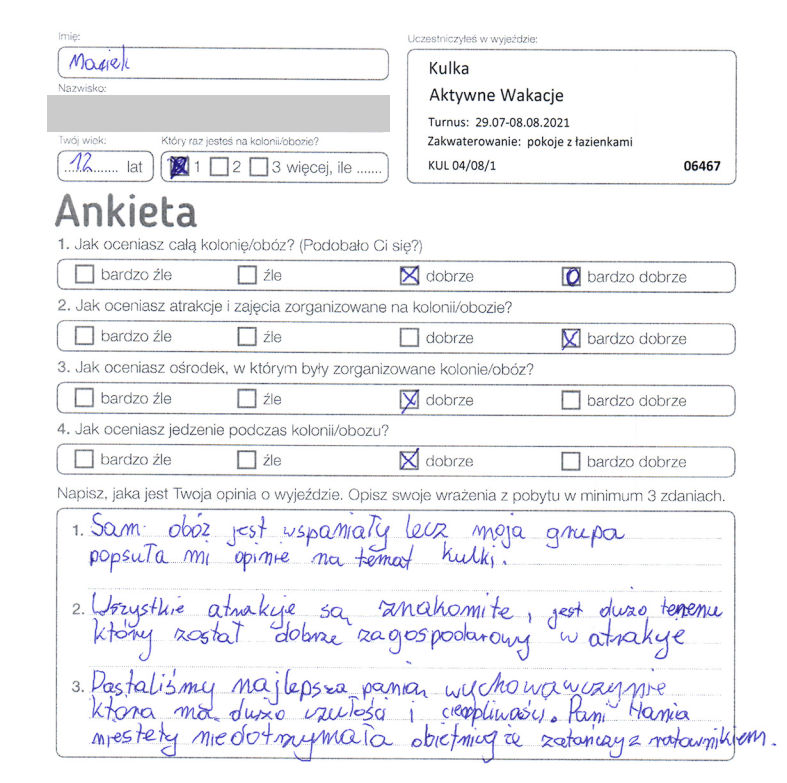 Imię:
Maciek
Uczestniczyłeś w wyjeździe:
Kulka
Aktywne Wakacje
Turnus: 29.07-08.08.2021
Zakwaterowanie: pokoje z łazienkami
KUL 04/08/1 06467
Nazwisko:
Twój wiek: Który raz jesteś na kolonii/obozie?
12 lat 1 2 3 więcej, ile .......
Ankieta
1. Jak oceniasz całą kolonię/obóz? (Podobało Ci się?)
bardzo źle źle dobrze bardzo dobrze
2. Jak oceniasz atrakcje i zajęcia zorganizowane na kolonii/obozie?
bardzo źle źle dobrze bardzo dobrze
3. Jak oceniasz ośrodek, w którym były zorganizowane kolonie/obóz?
bardzo źle źle dobrze bardzo dobrze
4. Jak oceniasz jedzenie podczas kolonii/obozu?
bardzo źle źle dobrze bardzo dobrze
Napisz, jaka jest Twoja opinia o wyjeździe. Opisz swoje wrażenia z pobytu w minimum 3 zdaniach.
1. Sam obóz jest wspaniały lecz moja grupa
popsuła mi opinie na temat kulki.
2. Wszystkie atrakcje są znakomite, jest dużo terenu
który został dobrze zagospodarowy w atrakcje
3. Dastaliśmy najlepszą panią wychowawczynie
która ma dużo czułości i cierpliwości. Pani Hania
niestety niedotrzymała obietnicy że zatańczy z ratownikiem.